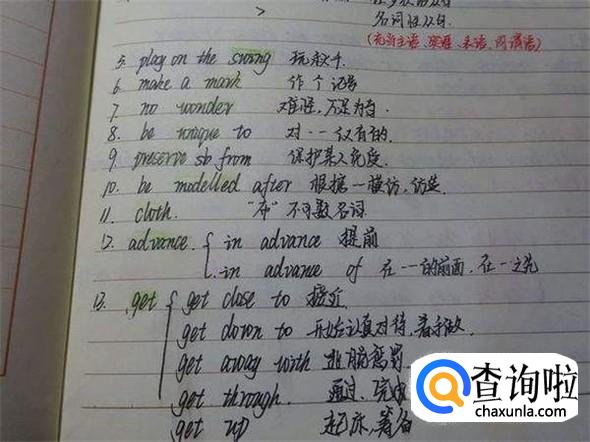 名词性从句.
(充当主语、宾语、表语、同谓语)
5. play on the swing 玩秋千
6. make a mark 作个记号
7. no wonder 难怪,不足为奇
8. be unique to 对……仅有的.
9. preserve sb from 保护某人免度.
10. be modelled after 根据一模仿,仿造
11. cloth. "布"不可数名词
12. advance. { in advance 提前
in advance of 在……的前面,在……之先
13. get { get close to 接近
get down to 开始认真对待,着手做.
get away with 逃脱惩罚
get through. 通过,完成
get up 起床,
查询啦
chaxunla.com